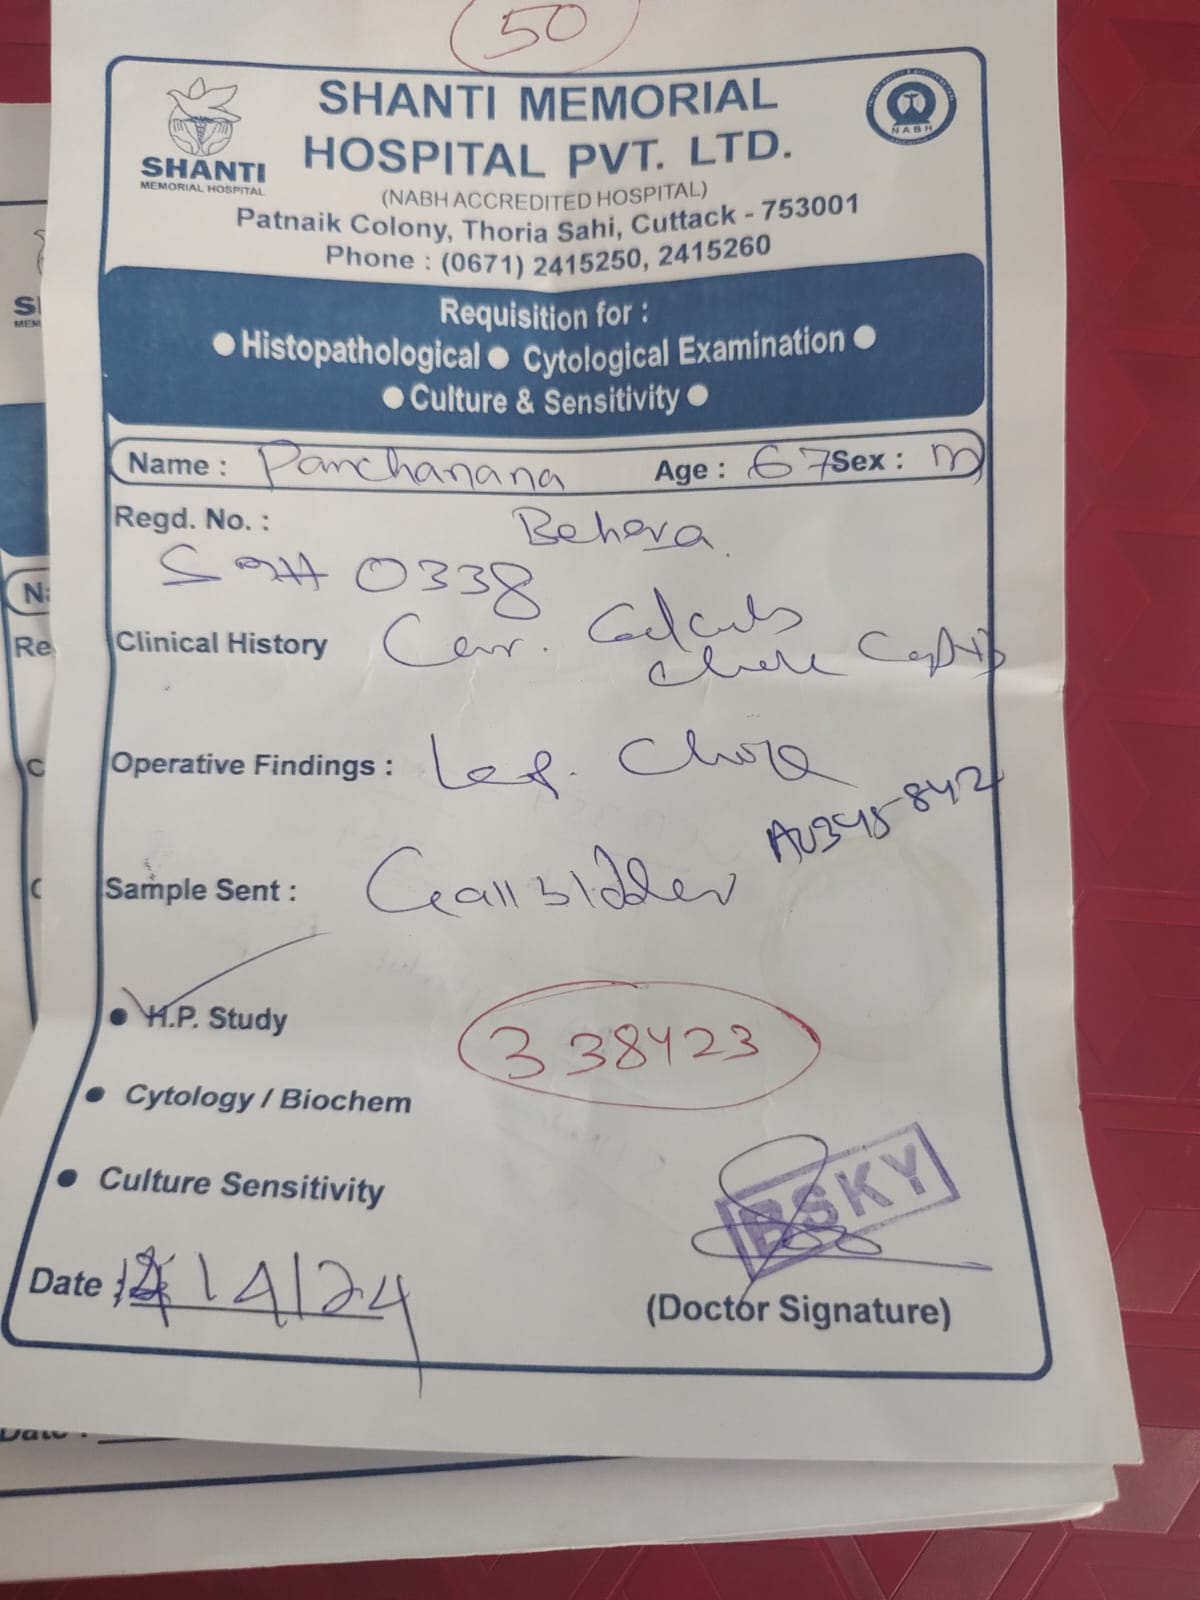 50
SHANTI MEMORIAL
HOSPITAL PVT. LTD.
SHANTI
MEMORIAL HOSPITAL
NABH
(NABH ACCREDITED HOSPITAL)
Patnaik Colony, Thoria Sahi, Cuttack - 753001
Phone : (0671) 2415250, 2415260
Requisition for :
● Histopathological ● Cytological Examination ●
● Culture & Sensitivity ●
Name : Panchanana Age : 67 Sex : M
Behera
Regd. No. :
0338
Clinical History
Operative Findings : Lap. Chole
Sample Sent : Gall bladder
• H.P. Study
338423
• Cytology / Biochem
• Culture Sensitivity
BSKY
Date /4/24
(Doctor Signature)